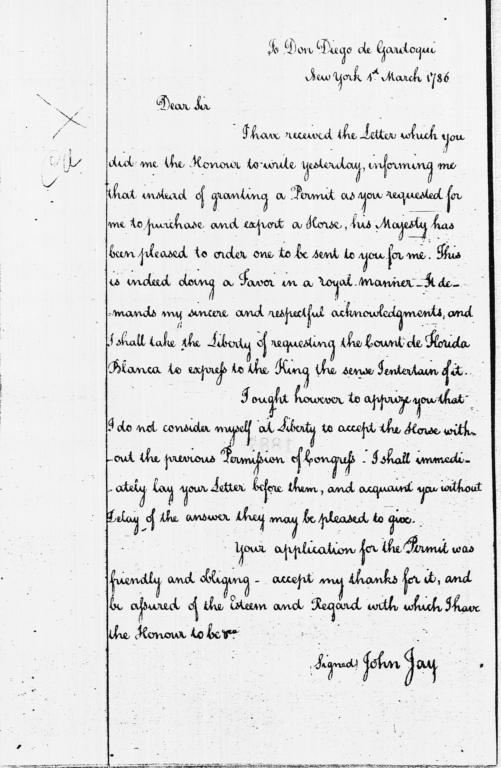 To Don Diego de Gardoqui
New York 1st March 1786
Dear Sir
I have received the Letter which you
did me the Honour to write yesterday, informing me
that instead of granting a Permit as you requested for
me to purchase and export a Horse, his Majesty has
been pleased to order one to be sent to you for me. This
is indeed doing a Favor in a royal manner_ It de-
-mands my sincere and respectful acknowledgments, and
I shall take the Liberty of requesting the Count de Florida
Blanca to express to the King the sense I entertain of it.
I ought however to apprize you that
I do not consider myself at Liberty to accept the Horse with-
-out the previous Permission of Congress. I shall immedi-
-ately lay your Letter before them, and acquaint you without
Delay of the answer they may be pleased to give.
Your application for the Permit was
friendly and obliging - accept my thanks for it, and
be assured of the Esteem and Regard with which I have
the Honour to be &ca
Signed) John Jay